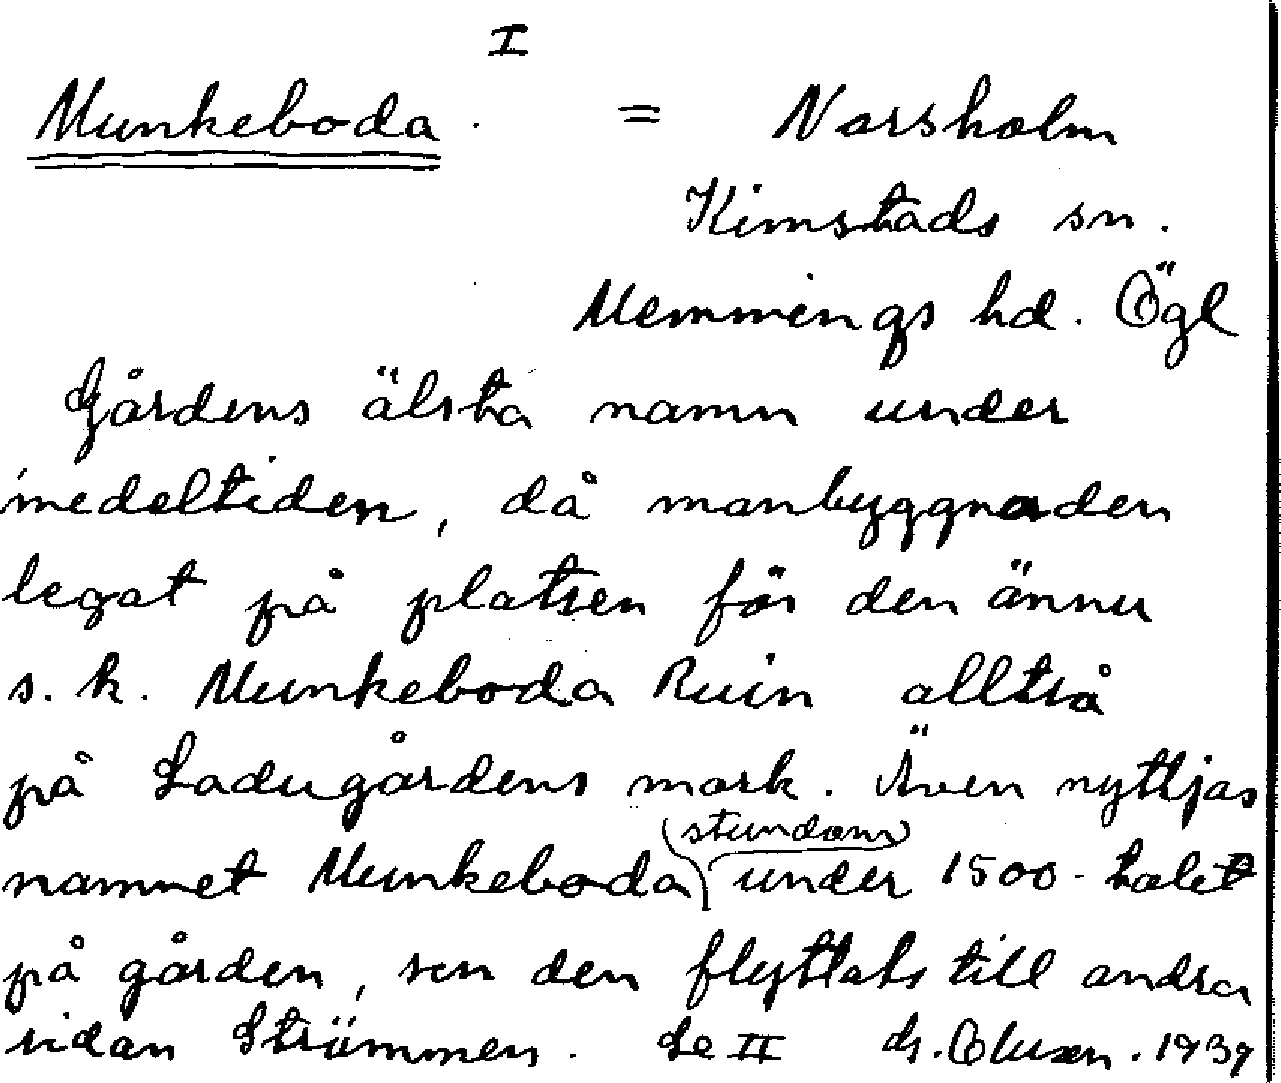 I
Munkeboda. = Norsholm
Kimstads sn.
Memmings hd. Ögl
Gårdens älsta namn under
medeltiden, då manbyggnaden
legat på platsen för den ännu
s. k. Munkeboda Ruin alltså
på Ladugårdens mark. Även nyttjas
namnet Munkeboda (stundom) under 1500-talet
på gården, sen den flyttats till andra
sidan Strömmen. Se II 1939